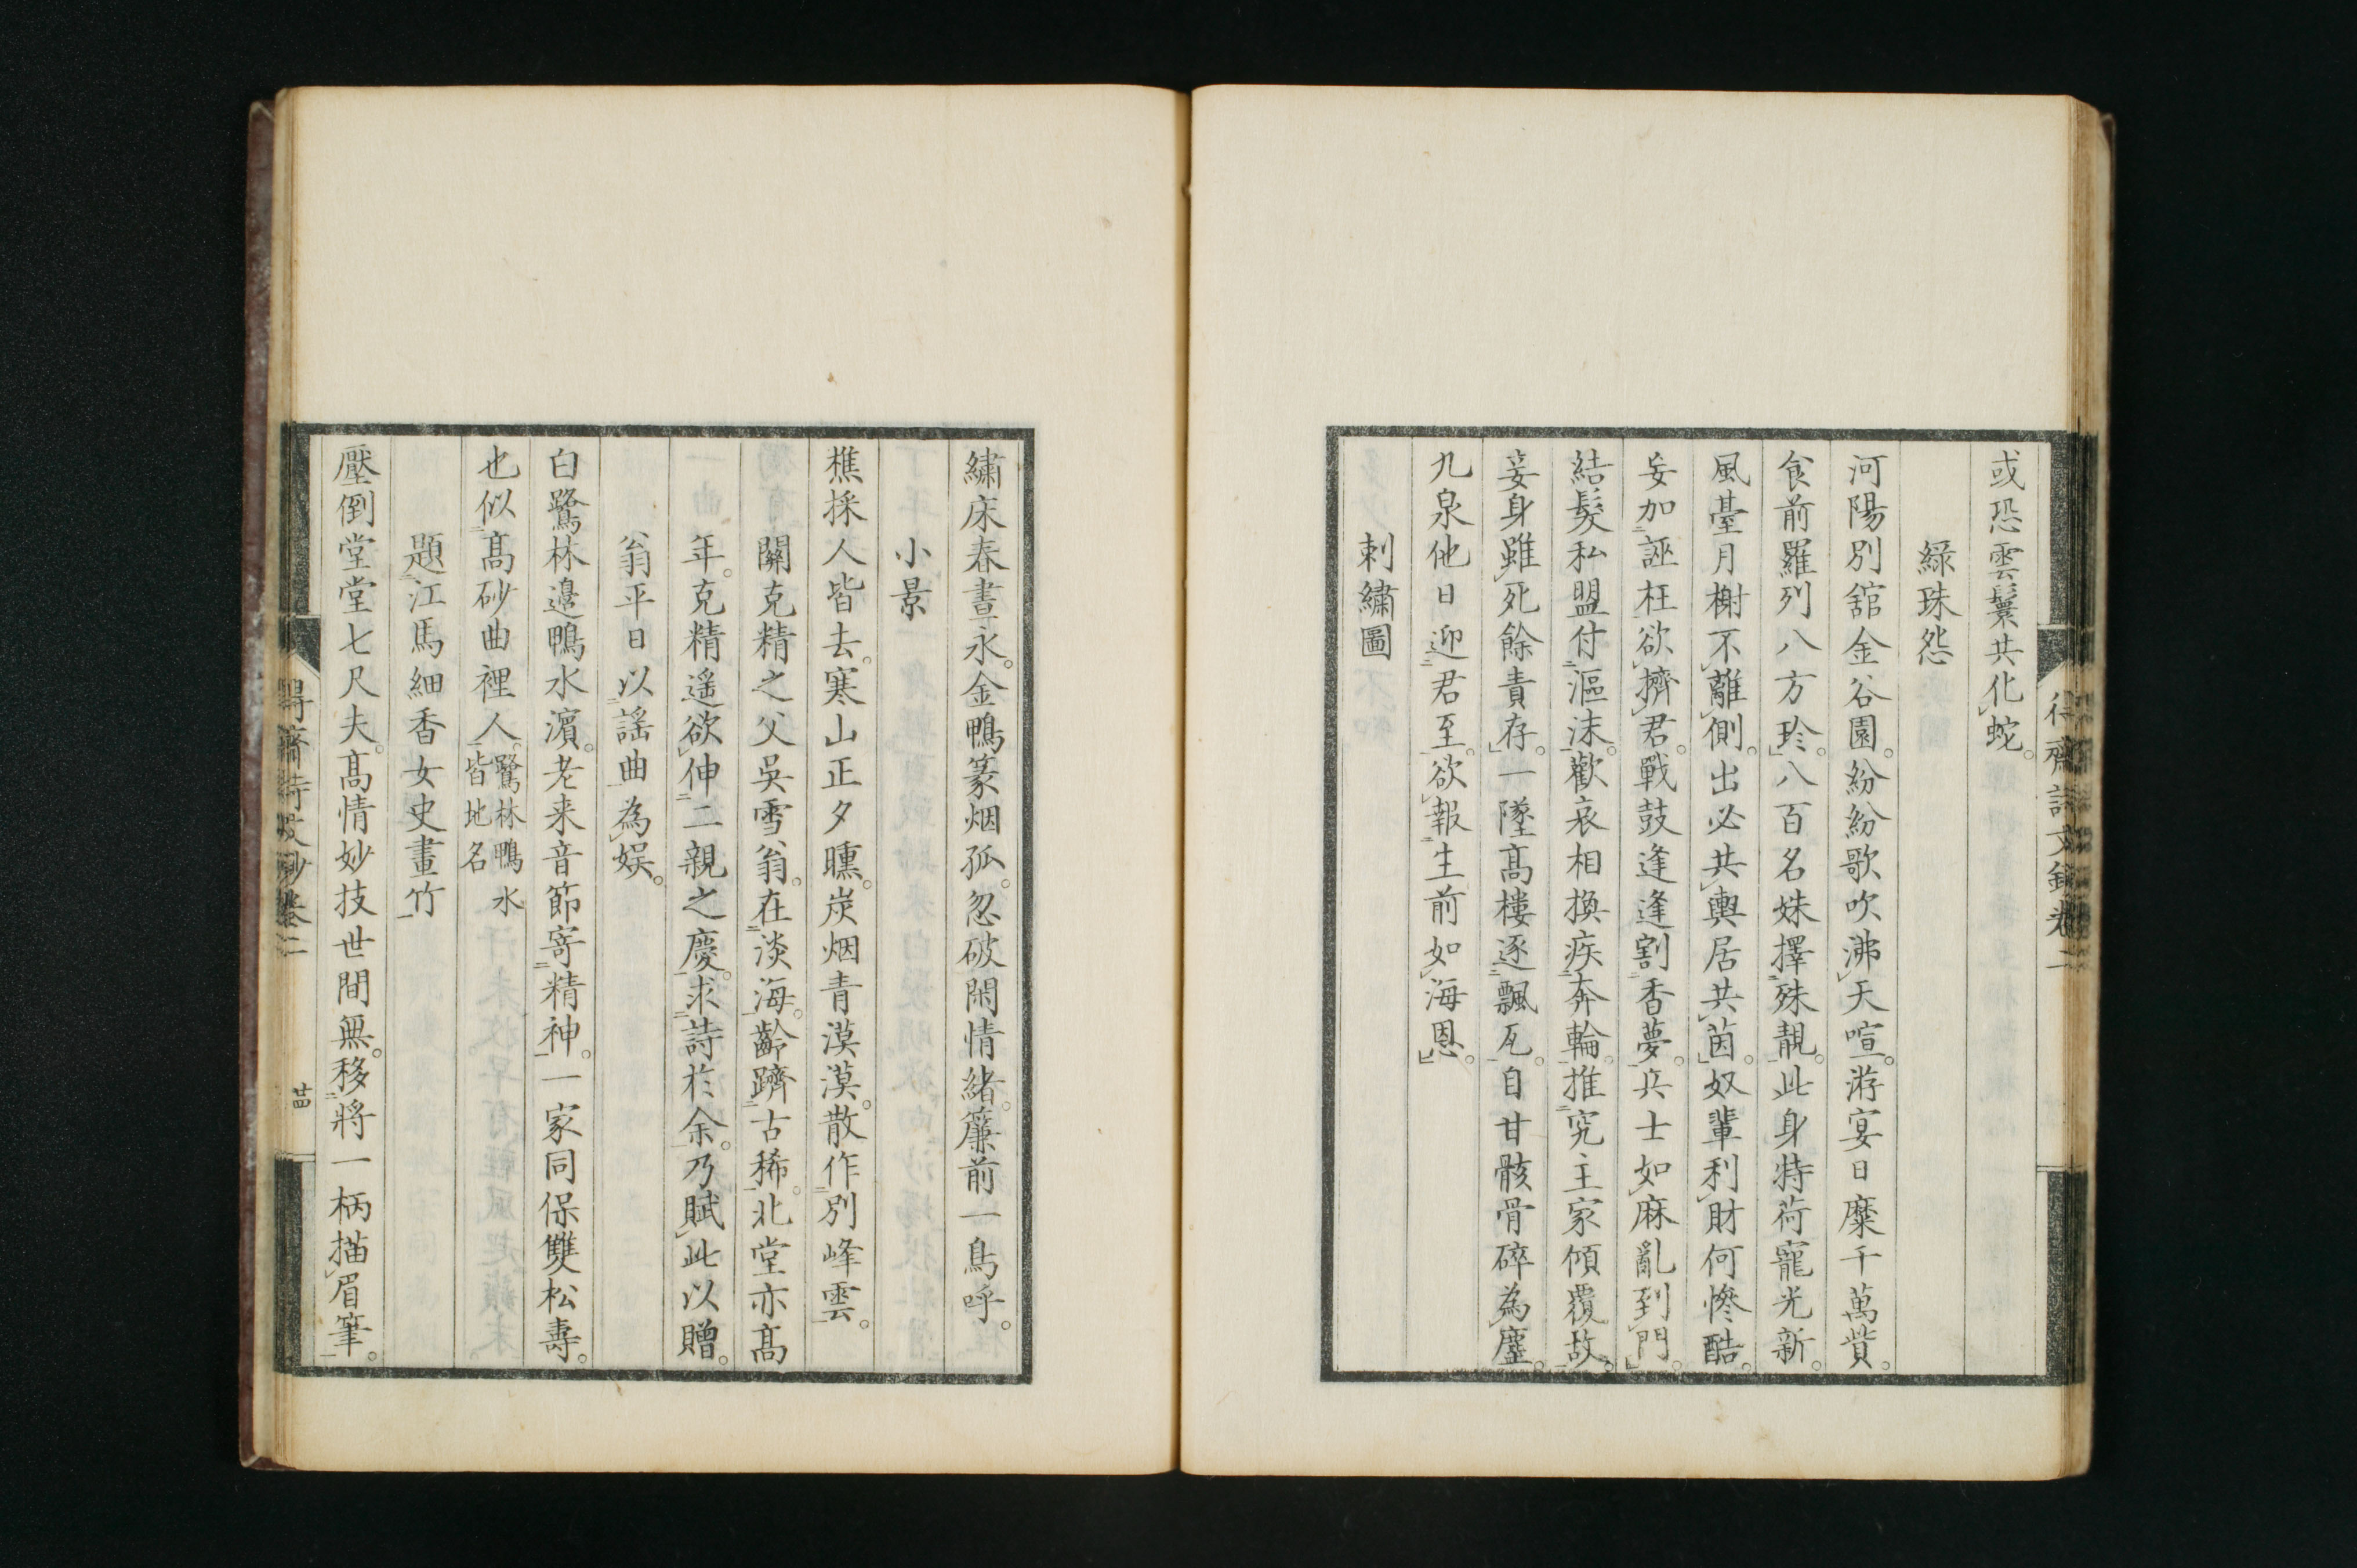 或恐雲鬟共化蛇。
綠珠怨
河陽別舘金谷園。紛紛歌吹沸天喧。游宴日糜千萬貲。
食前羅列八方珍。八百名姝擇殊靚。此身特荷寵光新。
風臺月榭不離側。出必共輿居共茵。奴輩利財何慘酷。
妄加誣枉欲擠君。戰鼓逢逢割香夢。兵士如麻亂到門。
結髮私盟付漚沫。歡哀相換疾奔輪。推究主家傾覆故。
妾身雖死餘責存。一墜高樓逐飄瓦。自甘骸骨碎為塵。
九泉他日迎君至。欲報生前如海恩。
刺繡圖
繡床春晝永。金鴨篆烟孤。忽破閑情緒。簾前一鳥呼。
小景
樵採人皆去。寒山正夕曛。炭烟青漠漠。散作別峰雲。
關克精之父吳雪翁。在淡海。齡躋古稀。北堂亦高
年。克精遙欲伸二親之慶。求詩於余。乃賦此以贈。
翁平日以謠曲為娛。
白鷺林邉鴨水濵。老来音節寄精神。一家同保雙松壽。
也似高砂曲裡人。鷺林鴨水
皆地名
題江馬細香女史畫竹
壓倒堂堂七尺夫。高情妙技世間無。移將一柄描眉筆。
齋詩文鈔卷二
廿四